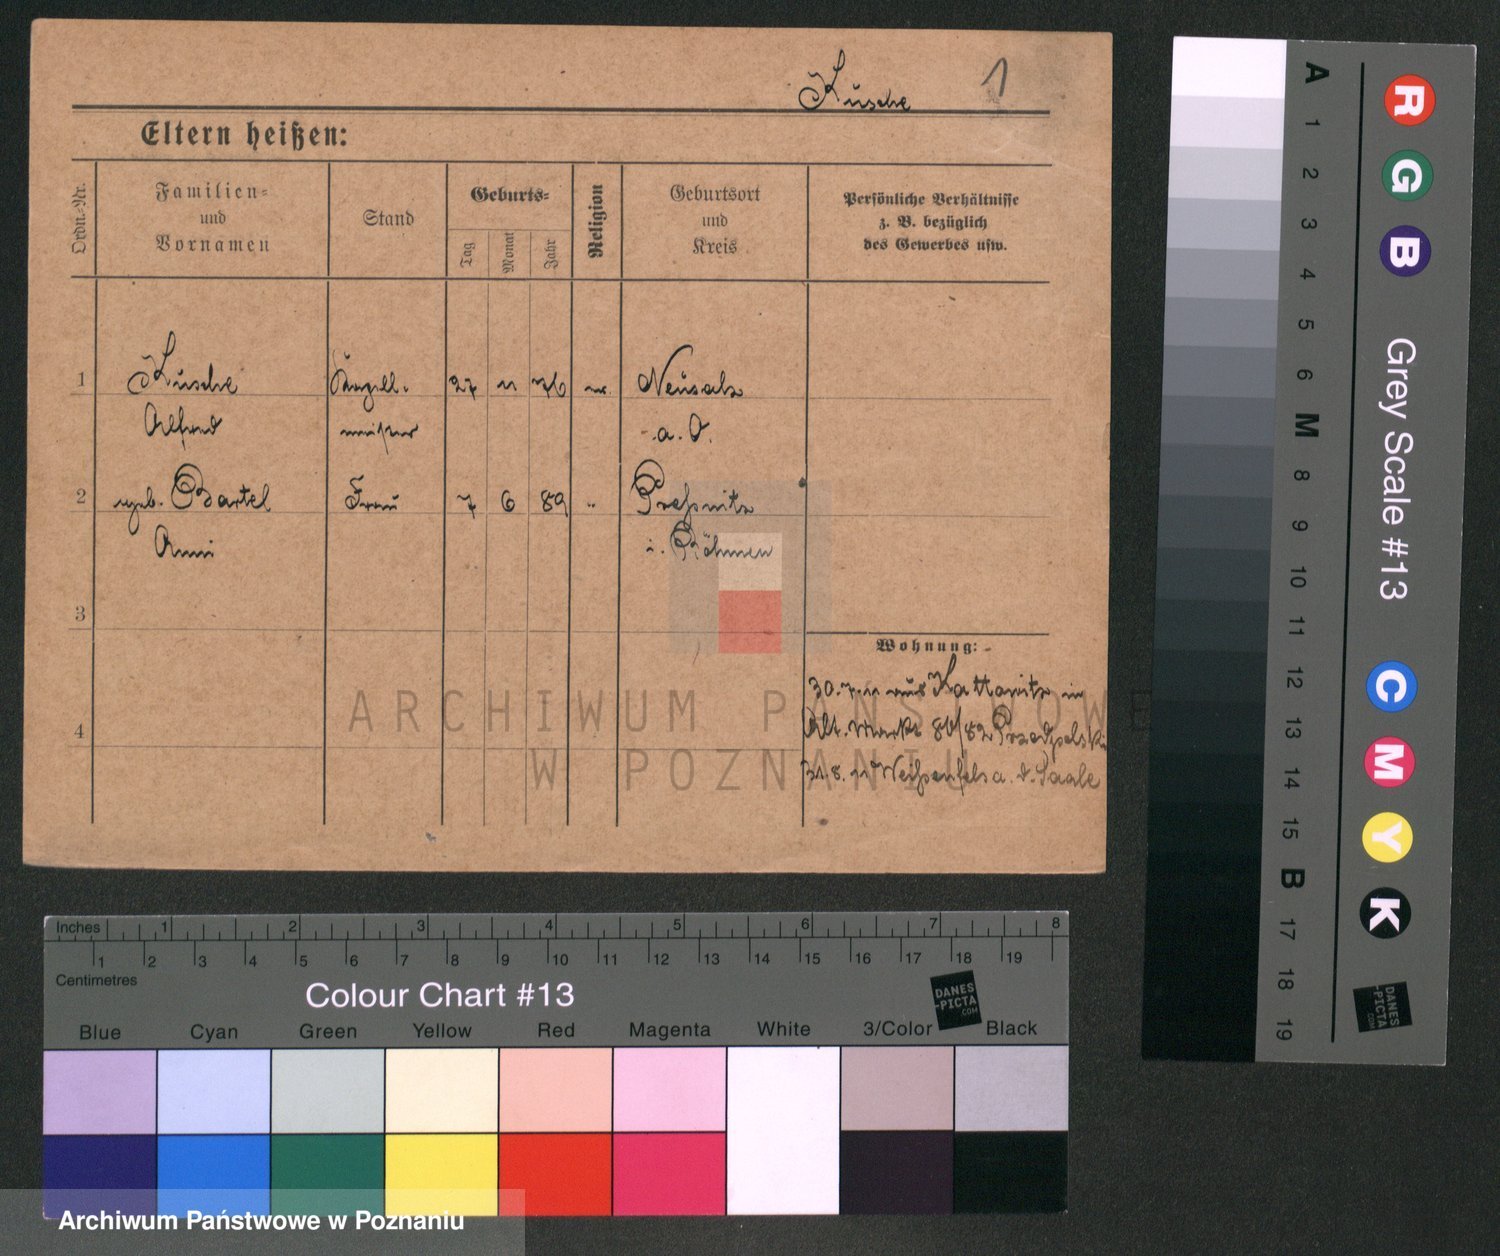 Kusche 1
Eltern heißen:
Ordn.-Nr.
Familien-
und
Vornamen
Stand
Geburts-
Tag
Monat
Jahr
Religion
Geburtsort
und
Kreis
Persönliche Verhältnisse
z. B. bezüglich
des Gewerbes usw.
1 Kusche 27 11 76 Neusalz
Alfred a. O.
2 geb. Bartel Frau 7 6 89 " Preßnitz
Anni i. Böhmen
3
4
Wohnung:
30.7.11 aus Kattowitz in
Alt. Markt 81/82
31.8.11 Weißenfels a. d. Saale
ARCHIWUM PAŃSTWOWE
W POZNANIU
Inches 1 2 3 4 5 6 7 8
1 2 3 4 5 6 7 8 9 10 11 12 13 14 15 16 17 18 19
Centimetres
Colour Chart #13
DANES
-PICTA
.COM
Blue Cyan Green Yellow Red Magenta White 3/Color Black
Archiwum Państwowe w Poznaniu
A 1 2 3 4 5 6 M 8 9 10 11 12 13 14 15 B 17 18 19
R G B
Grey Scale #13
C M Y K
DANES
-PICTA
.COM